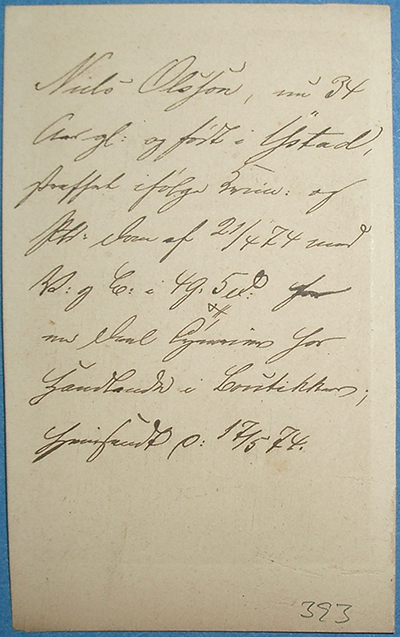 Niels Olsson, nu 34
Aar gl: og født i Ystad,
straffet ifølge Crim: og
Pol: Dom af 21/4 74 med
V: og B: i 4 G. 5 D. for
en Deel Tyverier hos
Handlende i Boutikker;
hjemsendt d: 17/5 74.
393